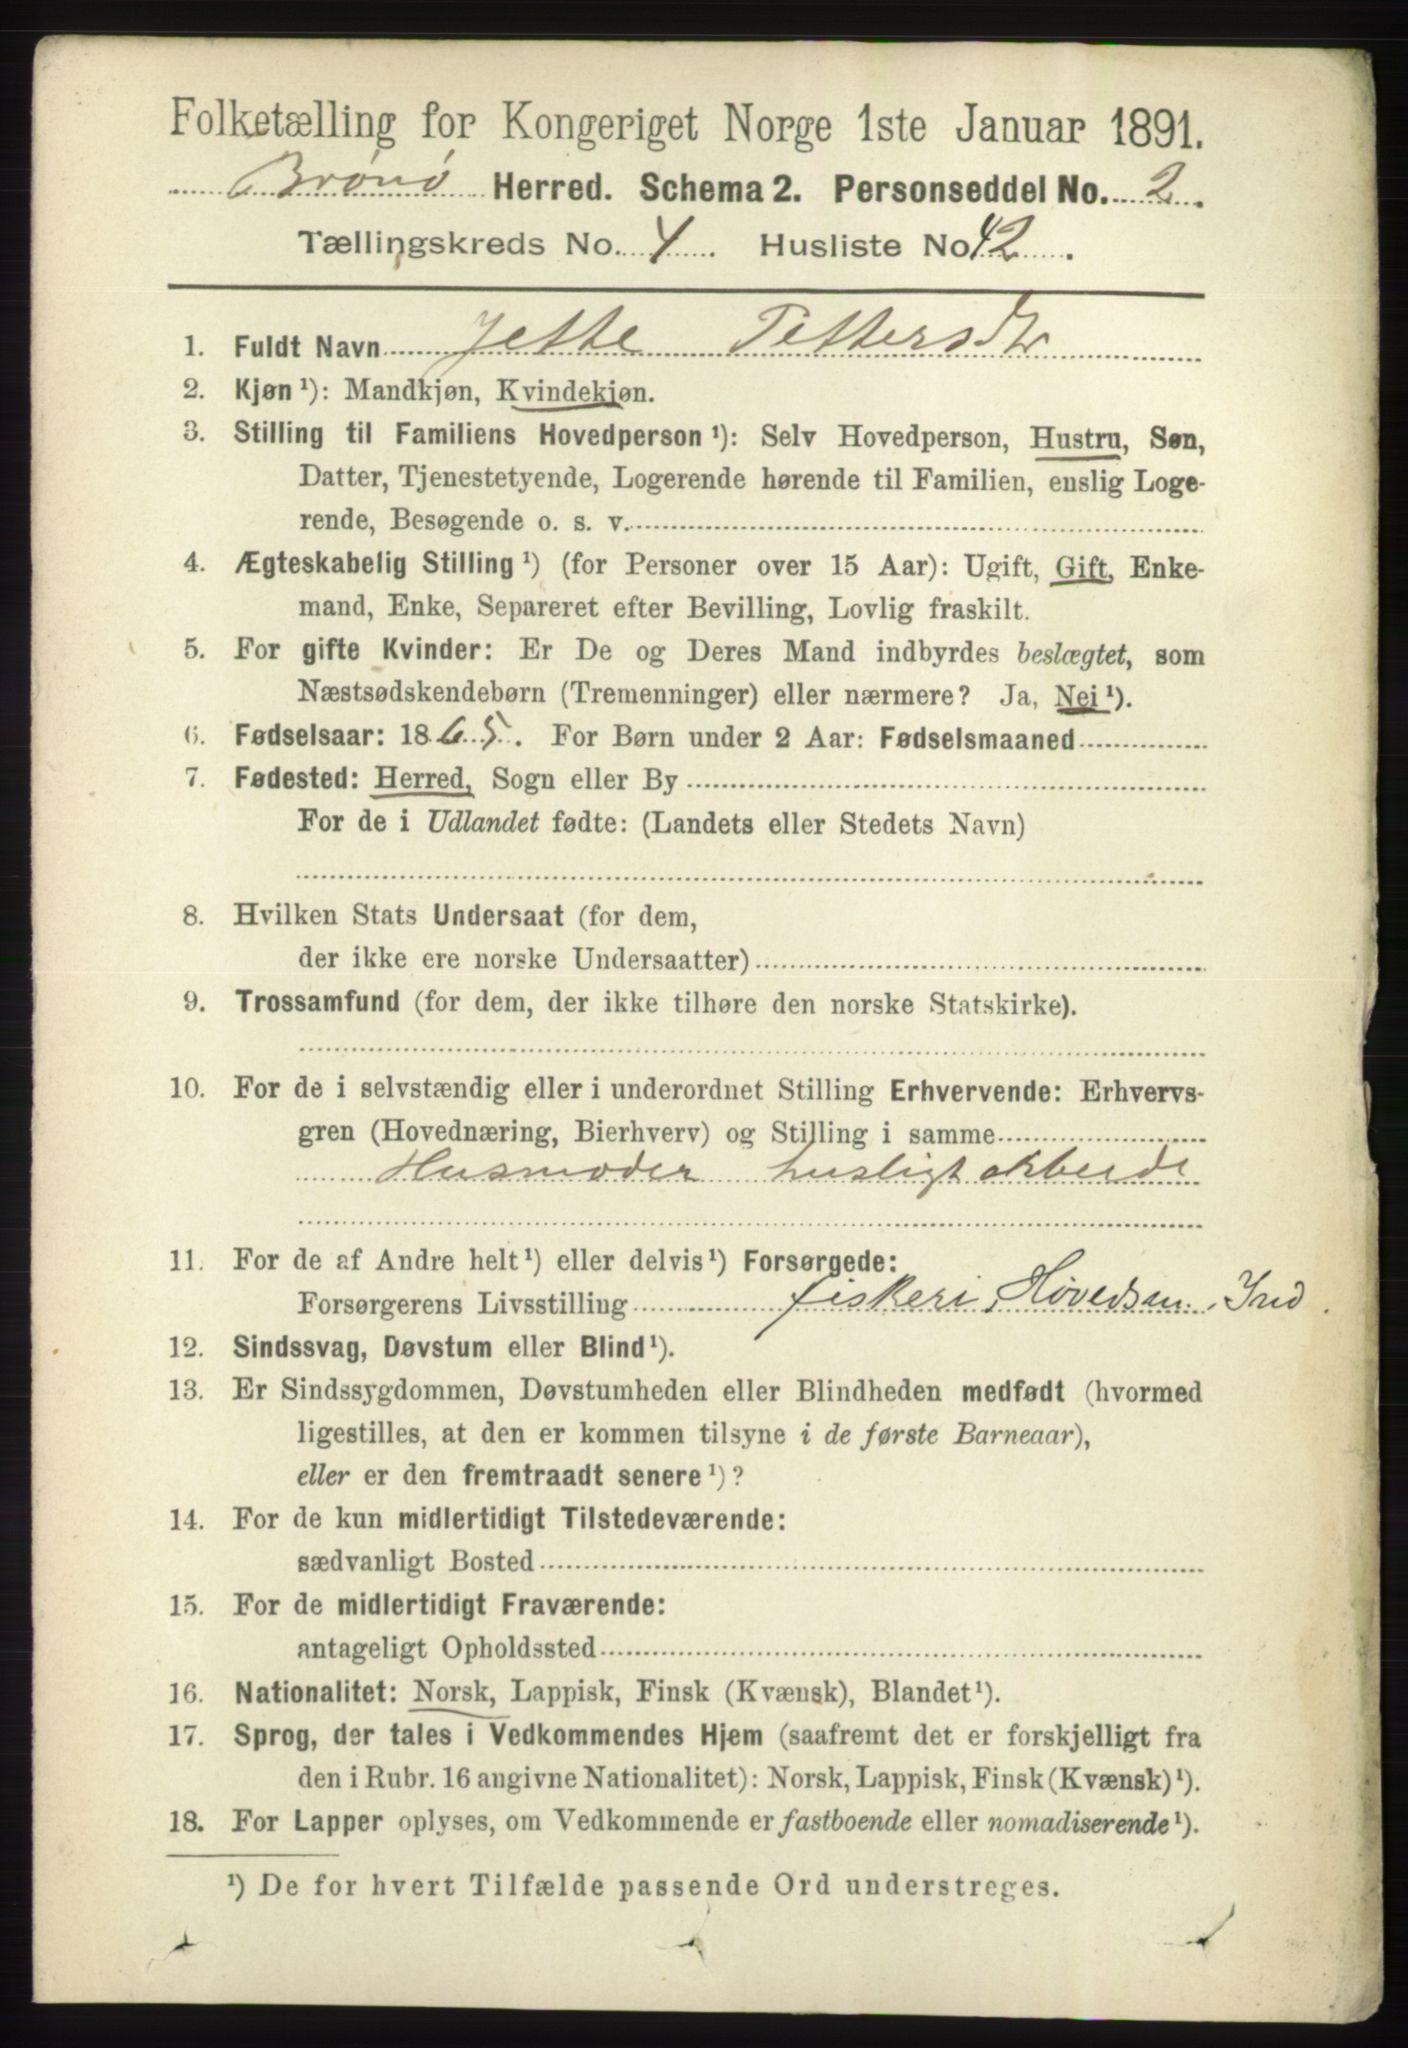 Folketælling for Kongeriget Norge 1ste Januar 1891.
Brønø Herred. Schema 2. Personseddel No. 2.
Tællingskreds No. 4. Husliste No 42.
1. Fuldt Navn Jette Pettersdtr
2. Kjøn ¹): Mandkjøn, Kvindekjøn.
3. Stilling til Familiens Hovedperson ¹): Selv Hovedperson, Hustru, Søn,
Datter, Tjenestetyende, Logerende hørende til Familien, enslig Loge-
rende, Besøgende o. s. v.
4. Ægteskabelig Stilling ¹) (for Personer over 15 Aar): Ugift, Gift, Enke-
mand, Enke, Separeret efter Bevilling, Lovlig fraskilt.
5. For gifte Kvinder: Er De og Deres Mand indbyrdes beslægtet, som
Næstsødskendebørn (Tremenninger) eller nærmere? Ja, Nei ¹).
6. Fødselsaar: 1865. For Børn under 2 Aar: Fødselsmaaned
7. Fødested: Herred, Sogn eller By
For de i Udlandet fødte: (Landets eller Stedets Navn)
8. Hvilken Stats Undersaat (for dem,
der ikke ere norske Undersaatter)
9. Trossamfund (for dem, der ikke tilhøre den norske Statskirke).
10. For de i selvstændig eller i underordnet Stilling Erhvervende: Erhvervs-
gren (Hovednæring, Bierhverv) og Stilling i samme
Husmoder husligt arbeide
11. For de af Andre helt ¹) eller delvis ¹) Forsørgede:
Forsørgerens Livsstilling fiskeri, Høvedsm. Ind.
12. Sindssvag, Døvstum eller Blind ¹).
13. Er Sindssygdommen, Døvstumheden eller Blindheden medfødt (hvormed
ligestilles, at den er kommen tilsyne i de første Barneaar),
eller er den fremtraadt senere ¹)?
14. For de kun midlertidigt Tilstedeværende:
sædvanligt Bosted
15. For de midlertidigt Fraværende:
antageligt Opholdssted
16. Nationalitet: Norsk, Lappisk, Finsk (Kvænsk), Blandet ¹).
17. Sprog, der tales i Vedkommendes Hjem (saafremt det er forskjelligt fra
den i Rubr. 16 angivne Nationalitet): Norsk, Lappisk, Finsk (Kvænsk) ¹).
18. For Lapper oplyses, om Vedkommende er fastboende eller nomadiserende ¹).
¹) De for hvert Tilfælde passende Ord understreges.